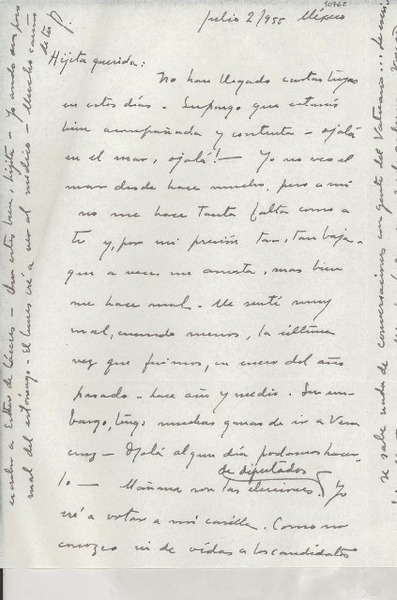 10762
Julio 2/955 México
Hijita querida:
No han llegado cartas tuyas
en estos días. Supongo que estarás
bien acompañada y contenta - ojalá
en el mar, ojalá! - Yo no veo el
mar desde hace mucho, pero a mí
no me hace tanta falta como a
ti y, por mi presión tan, tan baja
que a veces me asusta, mas bien
me hace mal. Me sentí muy
mal, cuando menos, la última
vez que fuimos, en enero del año
pasado - hace año y medio. Sin em-
bargo, tengo muchas ganas de ir a Vera
cruz - Ojalá algun día podamos hacer-
lo - Mañana son las elecciones de diputados. Yo
iré a votar a mi casilla. Como no
conozco ni de vidas a los candidatos
escribo a Esther de Cáceres - Que estés bien, hijita - Yo ando un poco
mal del estómago - El lunes iré a ver al médico - Mucho cariño
de tu P.
se sabe nada de conversaciones con gente del Vaticano...